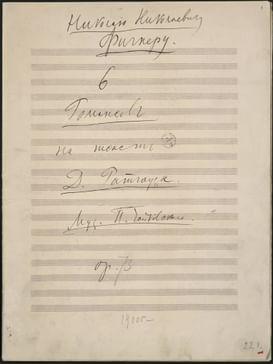 Николаю Николаевичу
Фигнеру.
6
Романсовъ
на тексты
Д. Ратгауза.
Муз. П. Чайковскаго
ор. 73